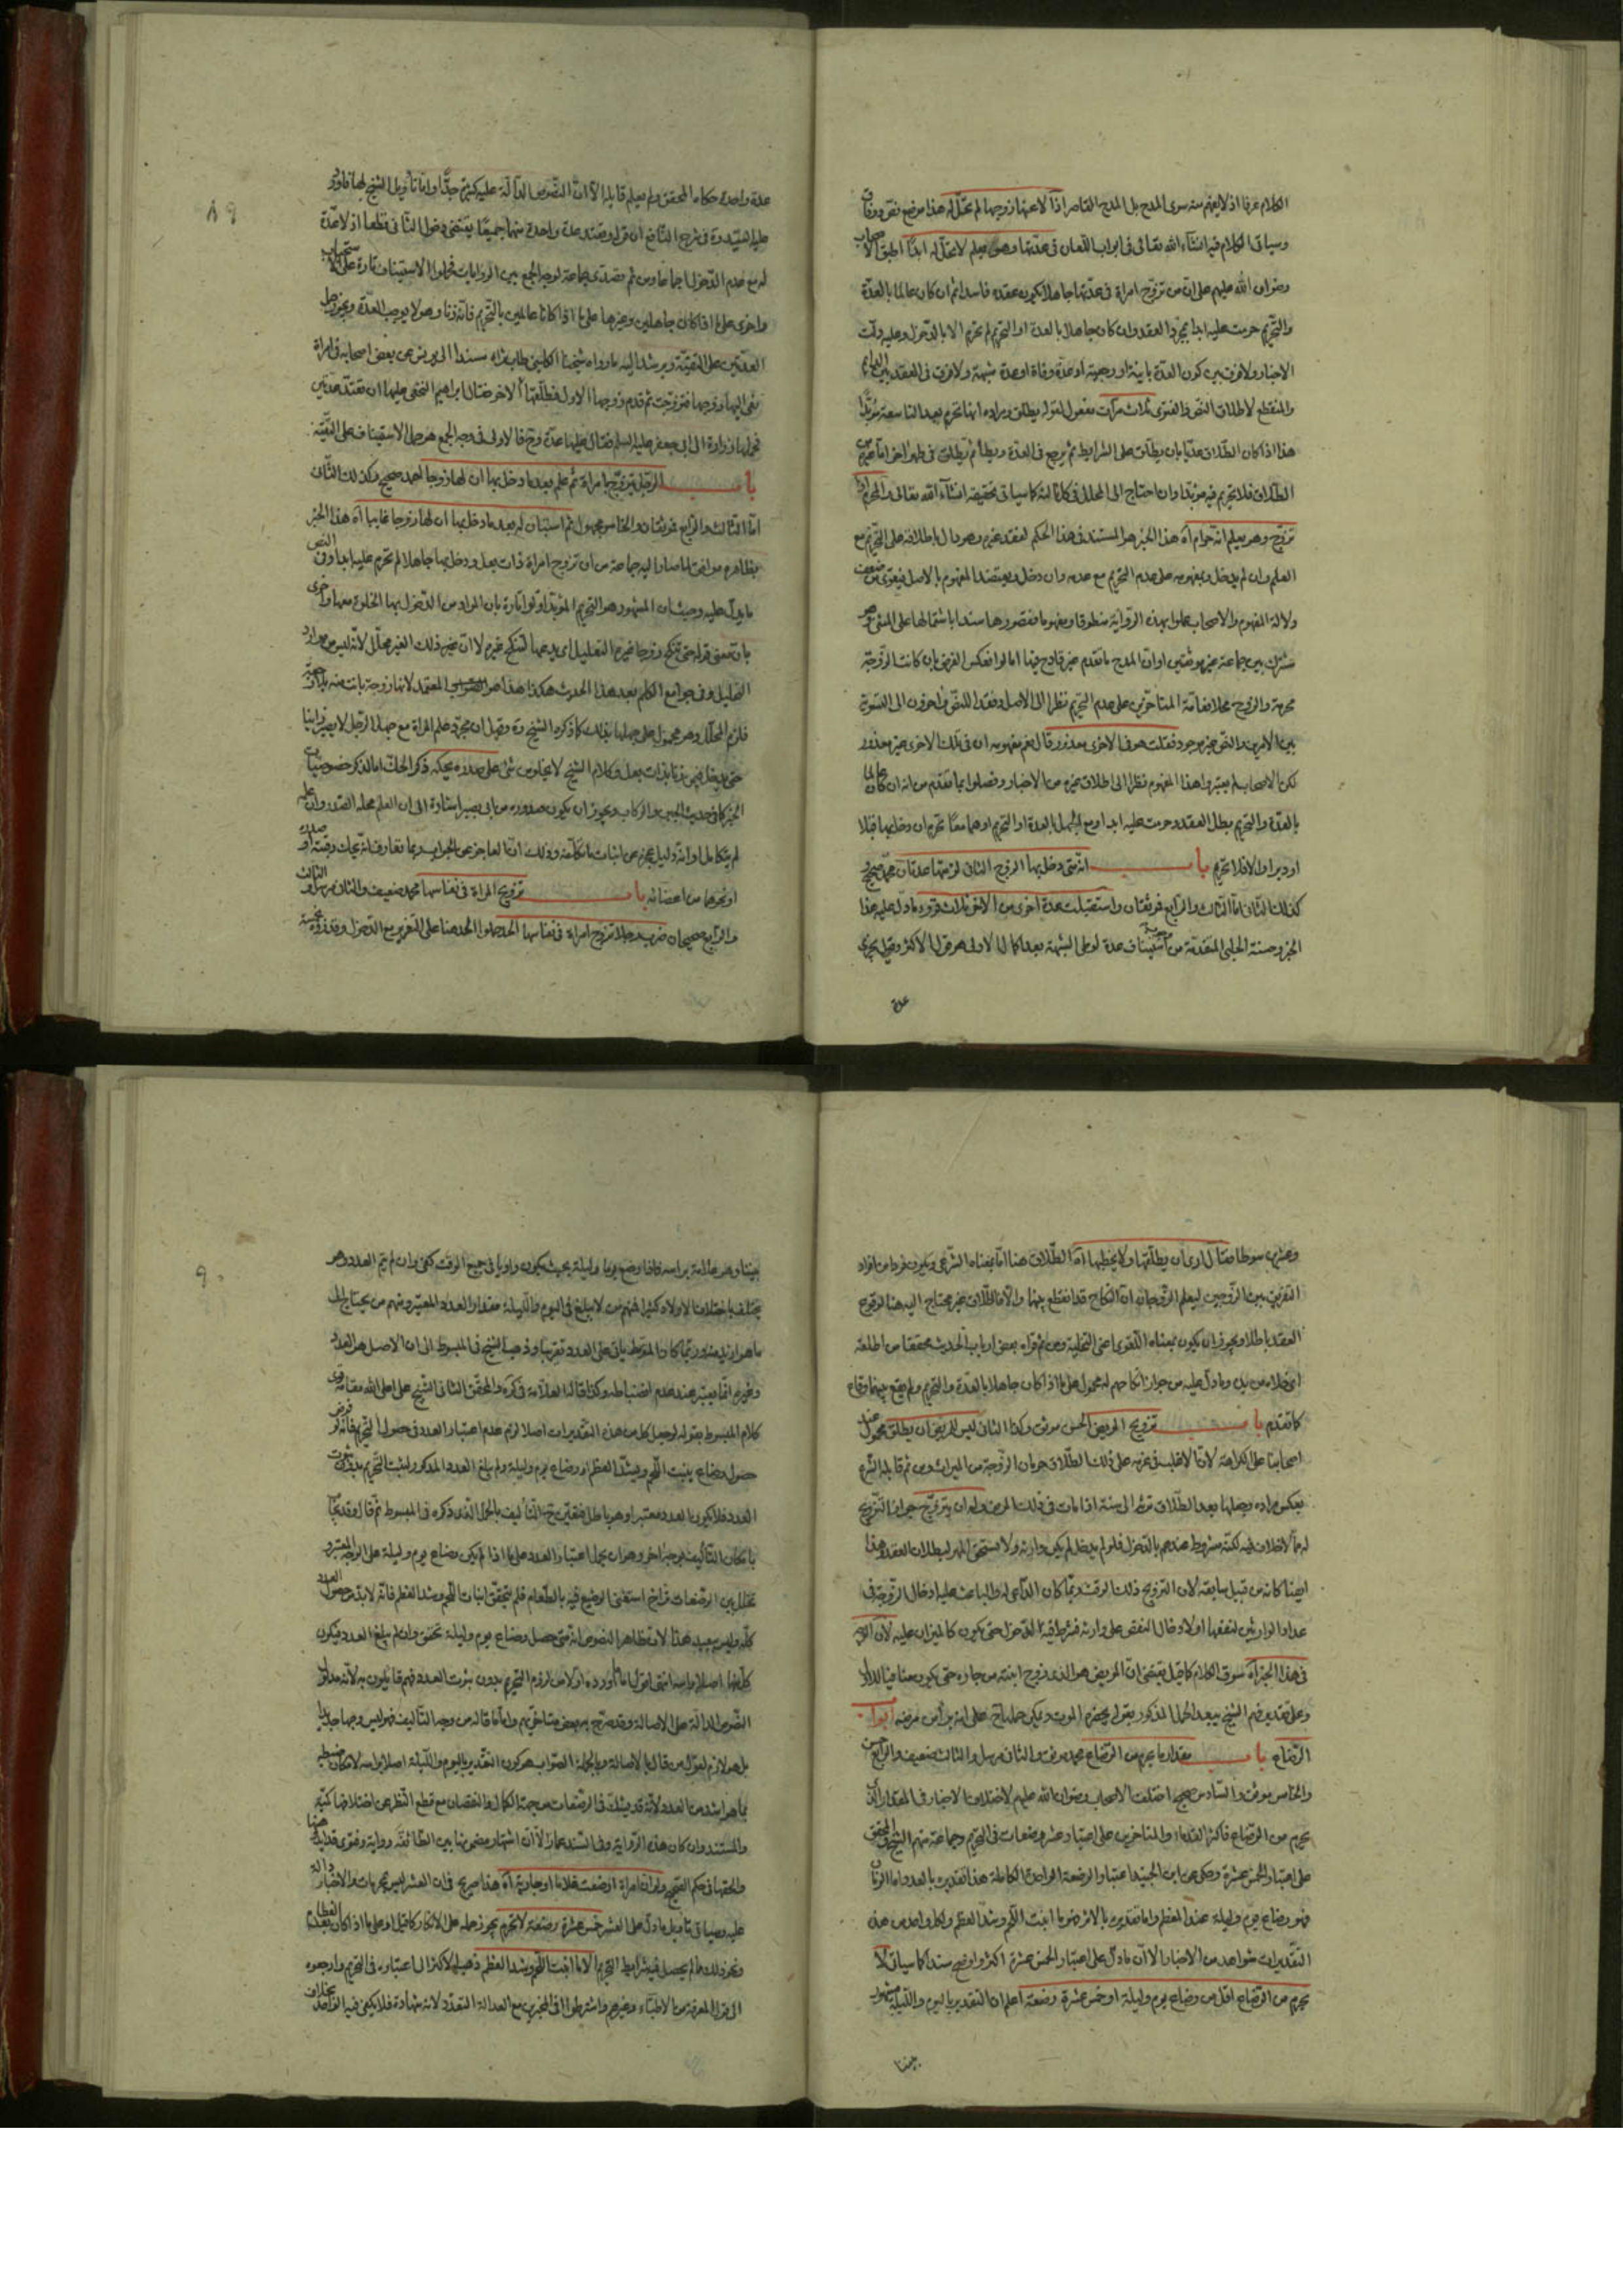 الكلام عرفا اذ لا يفهم منه سوى المدح بل المدح القاصر اذا لاعنها زوجها لم تحل له هذا موضع نص ووفاق
وسياتى الكلام فيه انشاء الله تعالى فى ابواب اللعان فى عدتها وهو يعلم لا تحل له ابدا اطبق الاصحاب
رضوان الله عليهم على ان من تزوج امراة فى عدتها جاهلا يكون عقده فاسدا ثم ان كان عالما بالعدة
والتحريم حرمت عليه ابدا بمجرد العقد وان كان جاهلا بالعدة او التحريم لم تحرم الا بالدخول وعليه دلت
الاخبار ولا فرق بين كون العدة باينة او رجعية او عدة وفاة او عدة شبهة ولا فرق فى العقد بين الدايم
والمنقطع لاطلاق النص والفتوى ثلاث مرات مفعول لقوله يطلق ومراده انها تحرم بعد التاسعة مؤبدا
هذا اذا كان الطلاق عديا بان يطلق على الشرايط ثم يرجع فى العدة ويطأ ثم يطلق فى طهر اخر اما غيره من
الطلاق فلا تحريم فيه مؤبدا وان احتاج الى المحلل فى كل ثالثة كما سياتى تحقيقه انشاء الله تعالى والمحرم اذا
تزوج وهو يعلم انه حرام اه هذا الخبر هو المستند فى هذا الحكم لفقد غيره وهو دال باطلاقه على التحريم مع
العلم وان لم يدخل وبمفهومه على عدم التحريم مع عدمه وان دخل ويعتضد المفهوم بالاصل فيقوى ضعف
دلالة المفهوم والاصحاب عملوا بهذه الرواية منطوقا ومفهوما فقصورها سندا باشتمالها على المثنى وهو
مشترك بين جماعة غير موثقين او ان المدح ما تقدم غير قادح فيها اما لو انعكس الفرض بان كانت الزوجة
محرمة والزوج محلا فعامة المتاخرين على عدم التحريم نظرا الى الاصل وفقد النص واخرون الى التسوية
بين الامرين والنص غير موجود فقلت هو فى الاخرى معذور قال نعم مفهومه ان فى تلك الاخرى غير معذور
لكن الاصحاب لم يعتبروا هذا المفهوم نظرا الى اطلاق غيره من الاخبار وفصلوا بما تقدم من انه ان كان عالما
بالعدة والتحريم بطل العقد وحرمت عليه ابدا ومع الجهل بالعدة او التحريم او هما معا تحرم ان دخل بها قبلا
او دبرا والا فلا تحريم باب انه متى دخل بها الزوج الثانى لزمتها عدتان محمد صحيح و
كذلك الثانى اما الثالث والرابع فموثقان واستقبلت عدة اخرى من الاخر ثلاث قروء ما دل عليه هذا
الخبر وحسنة الحلبى المتقدمة من استيناف عدة لوطى الشبهة بعد اكمال الاولى هو قول الاكثر وقيل يجزى
عدة
عدة واحدة حكاه المحقق ولم يعلم قايله الا ان النصوص الدالة عليه كثيرة جدا واما تاويل الشيخ لها فاورد
عليه السيد ره فى شرح النافع ان قوله وتعتد عدة واحدة منهما جميعا يقتضى دخول الثانى قطعا اذ لا عدة
له مع عدم الدخول اجماعا ومن ثم تصدى جماعة لوجه الجمع بين الروايات فحملوا الاستيناف تارة على الاستحباب
واخرى على ما اذا كان جاهلين وغيرها على ما اذا كانا عالمين بالتحريم فانه زنا وهو لا يوجب العدة وبعض حمل
العدتين على التقية ويرشد اليه ما رواه شيخنا الكلينى طاب ثراه مسندا الى يونس عن بعض اصحابه فى امراة
نعى اليها زوجها فتزوجت ثم قدم زوجها الاول فطلقها الاخر فقال ابراهيم النخعى عليها ان تعتد عدتين
فحملها زرارة الى ابى جعفر عليه السلم فقال عليها عدة وح فالاولى فى وجه الجمع هو حمل الاستيناف على التقية
باب الرجل يتزوج بامراة ثم علم بعد ما دخل بها ان لها زوجا احمد صحيح وكذلك الثانى
اما الثالث والرابع فموثقان والخامس مجهول ثم استبان له بعد ما دخل بها ان لها زوجا غايبا اه هذا الخبر
بظاهره موافق لما صار اليه جماعة من ان تزوج امراة ذات بعل ودخل بها جاهلا لم تحرم عليه ابدا وفى النص
ما يدل عليه وحيث ان المشهور هو التحريم المؤبد اولوا تارة بان المراد من الدخول بها الخلوة معها واخرى
بان معنى قوله حتى تنكح زوجا غيره التعليل اى يدعها لتنكح غيره لا ان غير ذلك الغير محلل لانه ليس من موارد
التحليل وفى جوامع الكلم بعد هذا الحديث هكذا هذا هو الصواب المعتمد لانها زوجة بانت منه
فلزم المحلل وهو محمول على جهلها بذلك كما ذكره الشيخ ره وقيل ان مجرد علم المراة مع جهل الرجل لا يصير زانيا
حتى يدخل فيمن زنا بذات بعل وكلام الشيخ لا يخلو من شئ على صدره بحكه ذكر الحك اما لذكر خصوصيات
الخبر كما فى حديث الجبن والركاب ويجوز ان يكون صدوره من ابى بصير اشارة الى ان العلم محله الصدر وان علمه
لم يتكامل او انه دليل عجزه عن اثبات ما تكلمه وذلك ان العاجز عن الجواب ربما تعارف انه يحك رقبته او صدره
او نحوهما من اعضائه باب تزويج المراة فى نفاسها محمد ضعيف والثانى مرسل و الثالث
والرابع صحيحان ضرب رجلا تزوج امراة فى نفاسها الحد حملوا الحد هنا على التعزير مع الدخول وقد ورد خمسة
وعشرين سوطا فقال ارى ان يطلقها ولا يخطبها اه الطلاق هنا اما بمعناه الشرعى ويكون فردا من افراد
التفريق بين الزوجين ليعلم الزوجان ان النكاح قد انقطع بينهما والا فالطلاق غير محتاج اليه هنا لوقوع
العقد باطلا ويجوز ان يكون بمعناه اللغوى اعنى التخلية ومن ثم قراه بعض ارباب الحديث مخففا من اطلقه
اى خلاه من يده وما دل عليه من جواز انكاحهم له محمول على ما اذا كان جاهلا بالعدة والتحريم ولم يقع بينهما وقاع
كما تقدم باب تزويج المريض الحسن موثق وكذا الثانى ليس للمريض ان يطلق محمول عند
اصحابنا على الكراهة لان الاغلب فى غرضه على ذلك الطلاق حرمان الزوجة من الميراث ومن ثم قابله الشرع
بعكس مراده وجعلها بعد الطلاق ترثه الى سنة اذا مات فى ذلك المرض وله ان يتزوج جواز التزويج
له مما لا خلاف فيه لكنه مشروط عندهم بالدخول فلو لم يدخل لم يكن وارثه ولا تستحق المهر لبطلان العقد وهذا
ايضا كانه من قبيل سابقه لان التزويج ذلك الوقت ربما كان الداعى له والباعث عليه ادخال الزوجة فى
عداد الوارثين لنفعها او لادخال النقص على وارثه فشرط فيه الدخول حتى يكون كالميزان عليه لان
فى هذا الخبر اه سوق الكلام كما قيل يقتضى ان المريض هو الذى زوج ابنته من جاره حتى يكون منافيا لذلك
وعلى تقدير فهم الشيخ يبعد الحمل المذكور بقوله يحضره الموت ويمكن حمله ايضا على انه برأ من مرضه ابواب
الرضاع باب مقدار ما يحرم من الرضاع محمد موثق والثانى مرسل والثالث ضعيف والرابع حسن
والخامس موثق والسادس صحيح اختلف الاصحاب رضوان الله عليهم لاختلاف الاخبار فى المقدار الذى
يحرم من الرضاع فاكثر القدماء والمتاخرين على اعتبار عشر رضعات فى التحريم وجماعة منهم الشيخ والمحقق
على اعتبار الخمس عشرة وحكى عن ابن الجنيد اعتبار الرضعة الواحدة الكاملة هذا تقديره بالعدد واما الزمان
فهو رضاع يوم وليلة عند المعظم واما تقديره بالاثر فهو ما انبت اللحم وشد العظم ولكل واحد من هذه
التقديرات شواهد من الاخبار الا ان ما دل على اعتبار الخمس عشرة اكثر واوضح سندا كما سياتى لا
يحرم من الرضاع اقل من رضاع يوم وليلة او خمس عشرة رضعة اعلم ان التقدير باليوم والليلة مشهور
بيننا
بيننا وهو علامة براسه فاذا وضع يوما وليلة بحيث يكون راويا فى جميع الوقت كفى وان لم يتم العدد وهو
يختلف باختلاف الاولاد كثيرا فمنهم من لا يبلغ فى اليوم والليلة مقدار العدد المعتبر ومنهم من يحتاج الى
ما هو ازيد منه وربما كان المتوسط ياتى على العدد تقريبا وذهب الشيخ فى المبسوط الى ان الاصل هو العدد
وغيره انما يعتبر عند عدم انضباطه وكذا قال العلامة فى كره والمحقق الثانى الشيخ على اعلى الله مقامه قوى
كلام المبسوط بقوله لو جعل كل من هذه التقديرات اصلا لزم عدم اعتبار العدد فى حصول التحريم فانه لو فرض
حصول رضاع ينبت اللحم ويشد العظم او رضاع يوم وليلة ولم يبلغ العدد المذكور لثبت التحريم بدون ثبوت
العدد فلا يكون العدد معتبرا وهو باطل فتعين ح التاليف بالحمل الذى ذكره فى المبسوط ثم قال وقد يجاب
بامكان التاليف بوجه اخر وهو ان يحمل اعتبار العدد على ما اذا لم يكن رضاع يوم وليلة على الوجه المعتبر و
تخلل بين الرضعات تراخ استغنى الرضيع فيه بالطعام فلم يتحقق انبات اللحم وشد العظم فانه لابد من حصول العدد
كله وليس ببعيد هذا لان ظاهر النصوص انه متى حصل رضاع يوم وليلة تحقق وان لم يبلغ العدد فيكون
كل منها اصلا براسه انتهى اقول اما ما اورده اولا من لزوم التحريم بدون ثبوت العدد فهم قايلون به لانه مدلول
النصوص الدالة على الاصالة وقد صرح به بعض متاخريهم واما ما قاله من وجه التاليف فهو ليس وجها جديدا
بل هو لازم لقول من قال بالاصالة وبالجملة الصواب هو كون التقدير باليوم والليلة اصلا براسه لامكان ضبطه
بما هو اشد من العدد لانه قد يشك فى الرضعات من جهة الكمال والنقصان مع قطع النظر عن اختلافها كثيرا
والمستند وان كان هذه الرواية وفى السند عمار الا ان اشتهار مضمونها بين الطائفة رواية وفتوى قد ايدها هنا
والحقها فى حكم الصحيح ولو ان امراة ارضعت غلاما او جارية اه هذا صريح فى ان العشر ليس بمحرمات والاخبار دالة
عليه وسياتى تاويل ما دل على العشر خمس عشرة رضعة لا تحرم يجوز حمله على الانكار كما قيل او على ما اذا كان بعد الفطام
ونحو ذلك مما لم يحصل فيه شرايط التحريم الا ما انبت اللحم وشد العظم ذهب الاكثر الى اعتباره فى التحريم وارجعوه
الى قول اهل المعرفة من الاطباء وغيرهم واشترطوا فى المخبرين مع العدالة التعدد لانه شهادة فلا يكفى فيه الواحد بخلاف